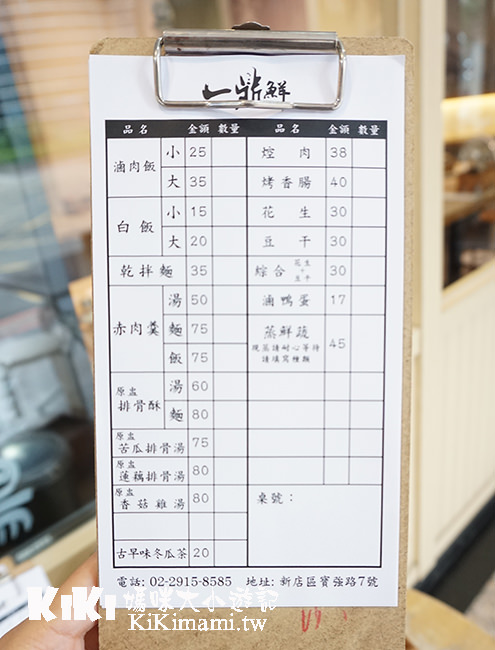 一鼎鮮
品名 金額 數量 品名 金額 數量
滷肉飯 小 25
大 35
白飯 小 15
大 20
乾拌麵 35
赤肉羹 湯 50
麵 75
飯 75
原盅
排骨酥 湯 60
麵 80
原盅
苦瓜排骨湯 75
原盅
蓮藕排骨湯 80
原盅
香菇雞湯 80
古早味冬瓜茶 20
焢肉 38
烤香腸 40
花生 30
豆干 30
綜合 花生+豆干 30
滷鴨蛋 17
蒸鮮蔬 45
現蒸請耐心等待
請填寫種類
桌號：
電話: 02-2915-8585 地址: 新店區寶強路7號
KiKi 媽咪大小遊記
KiKimami.tw